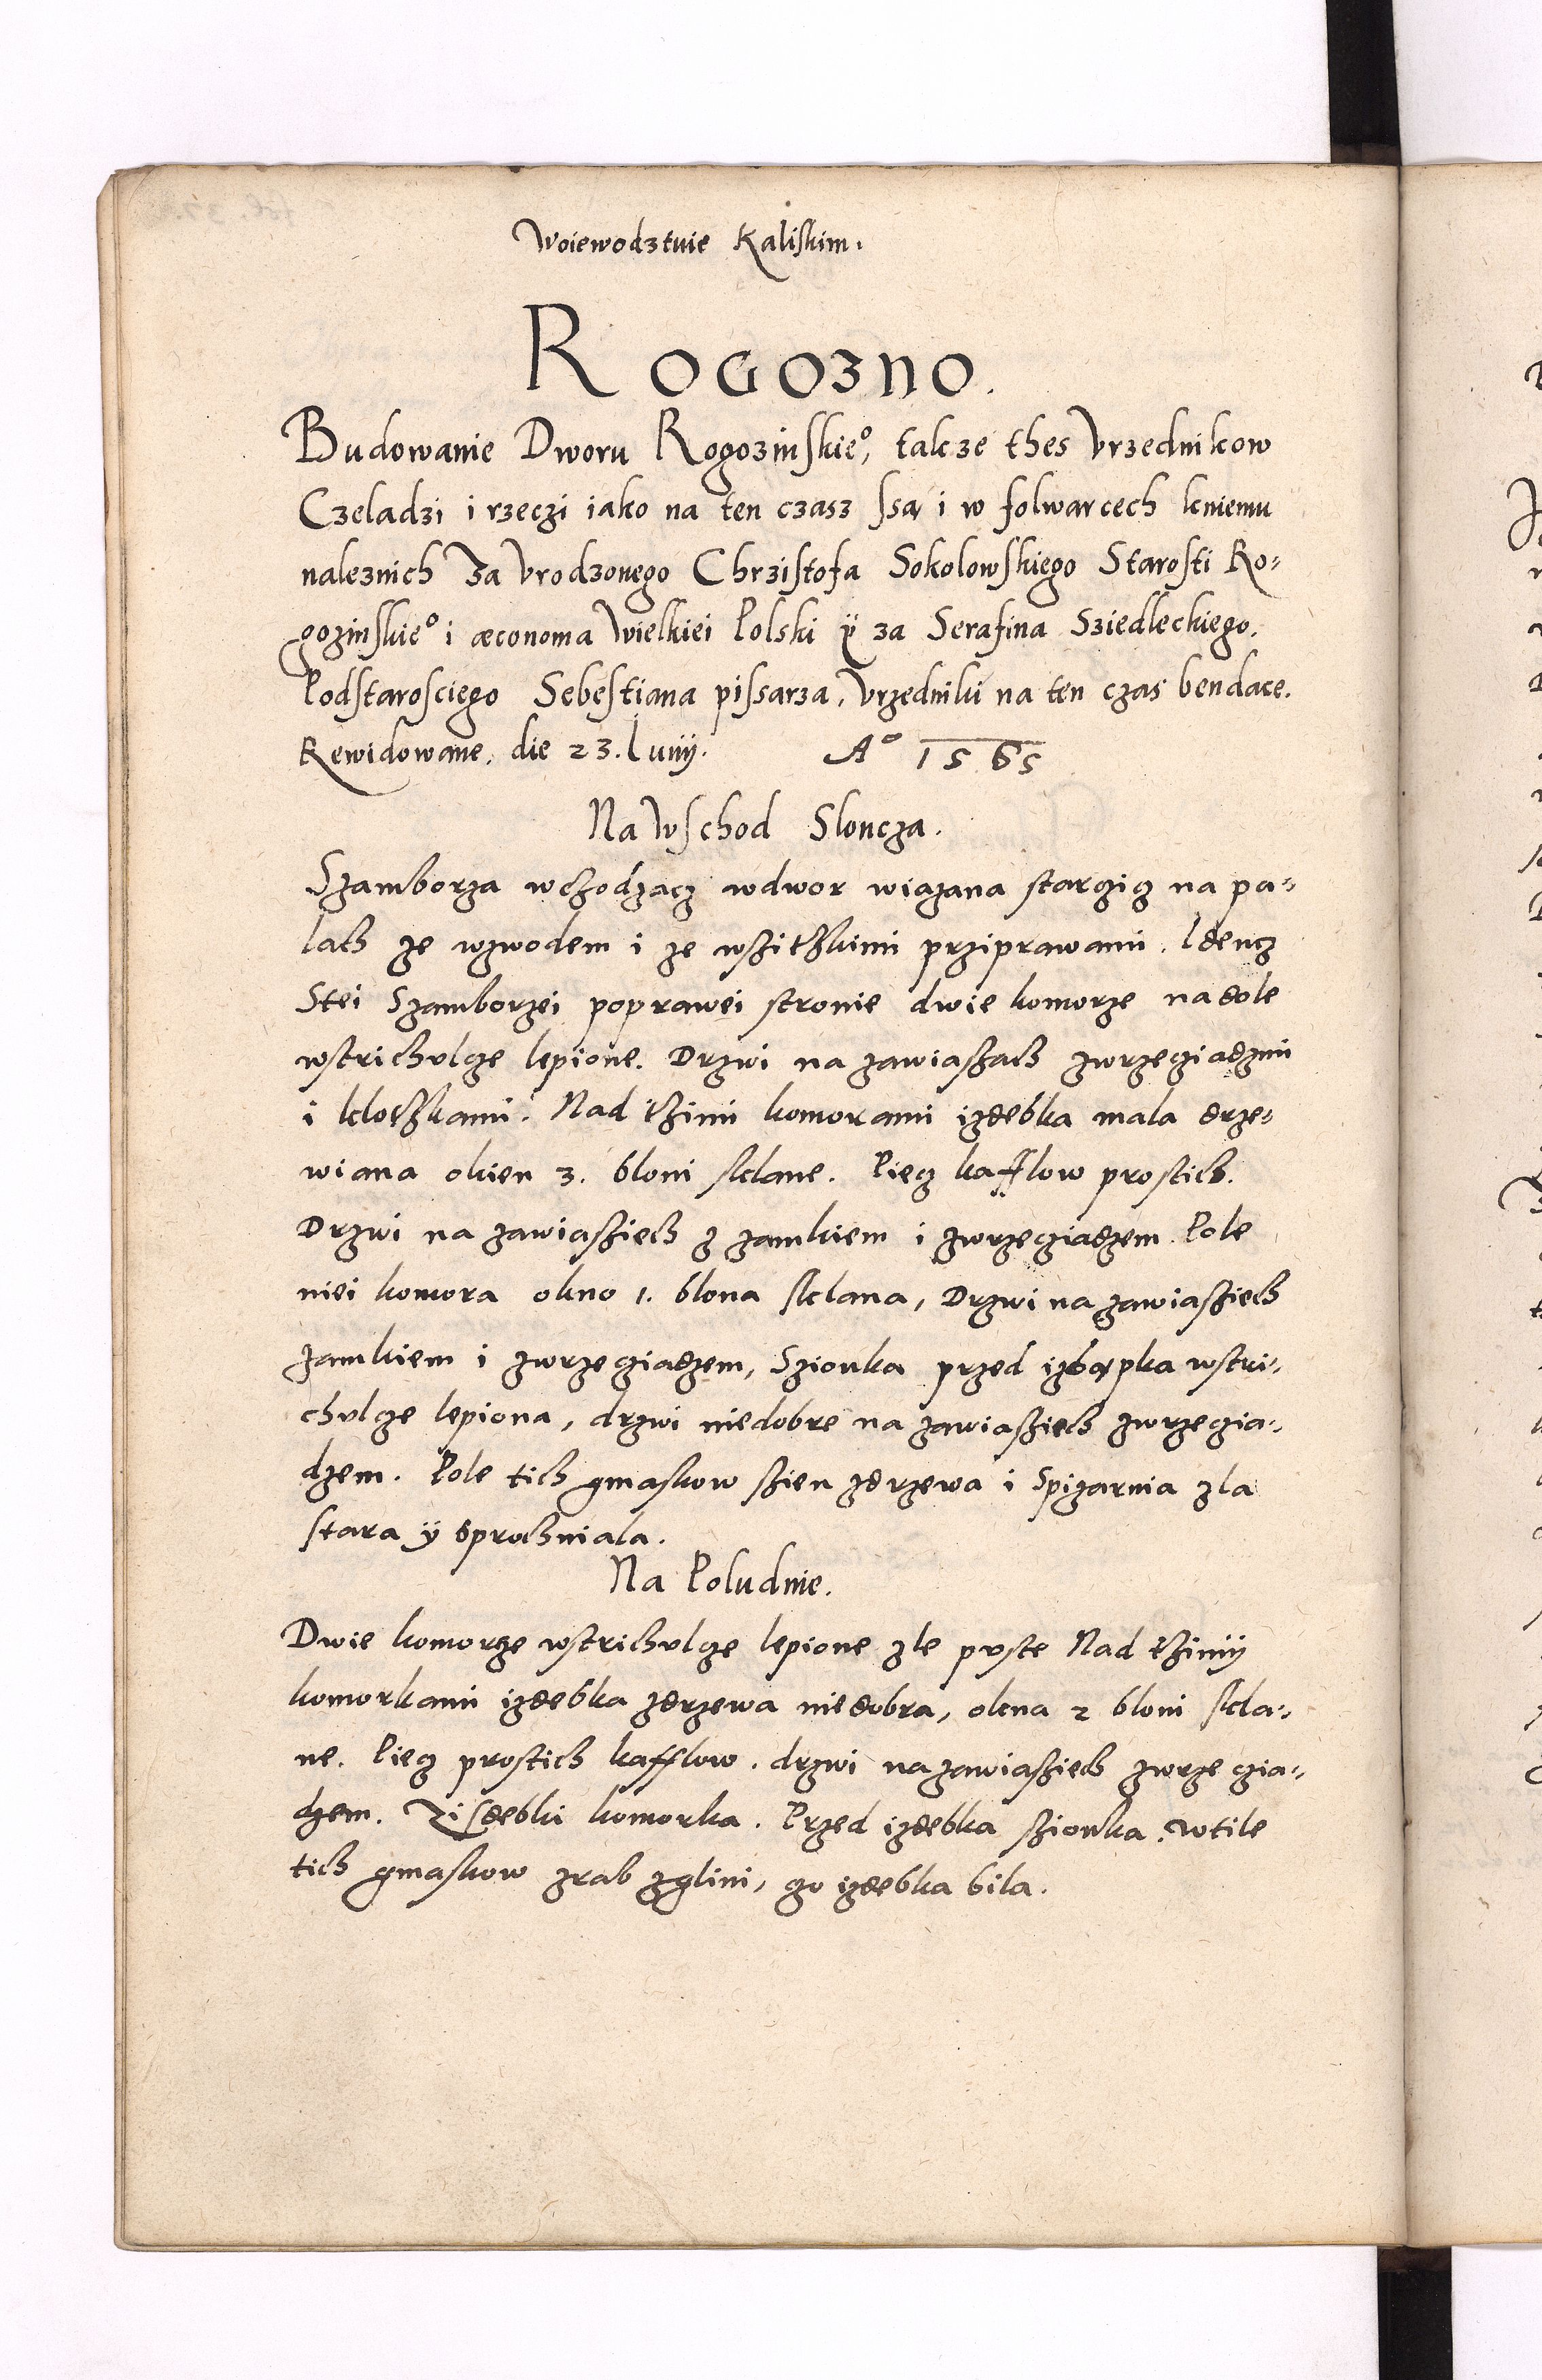 Woiewodztwie Kaliskim.
ROGOZNO.
Budowanie Dworu Rogozinskieº, takze thes Vrzednikow
Czeladzi i rzeczi iako na ten czasz ssą i w folwarcech kniemu
naleznich Za Vrodzonego Chrzistofa Sokolowskiego Starosti Ro-
gozinskieº i œconoma Wielkiei Polski ÿ za Serafina Sziedleckiego.
Podstarosciego Sebestiana pissarza, Vrzedniki na ten czas bendace.
Rewidowane. die 23. Iunij. Aº 1565
Na Wschod Sloncza.
Szamborza wchodzacz wdwor wiazana starczicz na pa-
lach ze wzwodem i ze wszitzkimi prziprawami. Idencz
Stei Szamborzei poprawei stronie dwie komorze nadole
wstrichulcze lepione. Drzwi na zawiaszach zwrzecziadzmi
i klotzkami. Nad tzimi komorami izdebka mala drze-
wiana okien 3. bloni sklane. Piecz kafflow prostich.
Drzwi na zawiasziech z zamkiem i zwrzecziadzem Pole
niei komora okno 1. blona sklana, Drzwi na zawiasziech
zamkiem i zwrzecziadzem, Szionka przed izbąpka wstri-
chulcze lepiona, drzwi niedobre na zawiasziech zwrzeczia-
dzem. Pole tich gmaskow szien zdrzewa i Spizarnia zla
stara ÿ sprochniala.
Na Poludnie.
Dwie komorze wstrichulcze lepione zle puste Nad tzimÿ
komorkami izdebka zdrzewa niedobra, okna 2 bloni skla-
ne. Piecz prostich kafflow. drzwi na zawiasziech zwrzeczia-
dzem. Zisdebki komorka. Przed izdebka szionka. Wtile
tich gmaskow zrab zglini, czo izdebka bila.